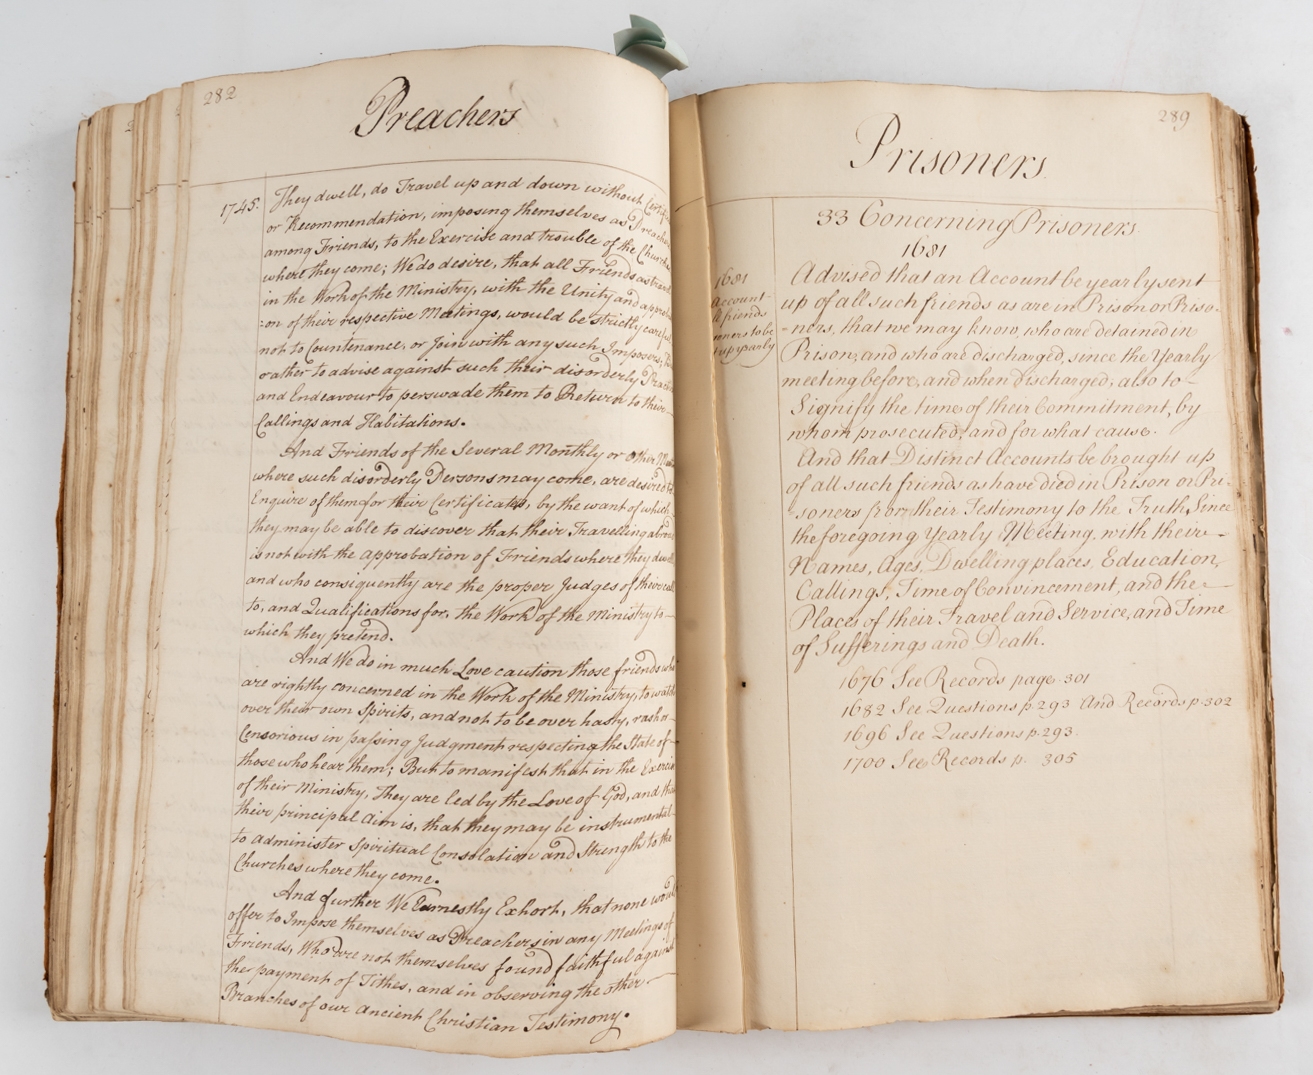 282
Preachers
1745.
They dwell, do Travel up and down without
or Recommendation, imposing themselves as
among Friends, to the Exercise and trouble of the
where they come; We do desire, that all Friends
in the Work of the Ministry, with the Unity and
:on of their respective Meetings, would be strictly
not to Countenance, or join with any such Imposers;
rather to advise against such their disorderly
and Endeavour to perswade them to Return to their
Callings and Habitations.
And Friends of the Several Monthly or other
where such disorderly Persons may come, are desired
Enquire of them for their Certificates, by the want of which
they may be able to discover that their Travelling
is not with the approbation of Friends where they
and who consiquently are the proper Judges of their
to, and Qualifications for, the Work of the Ministry to
which they pretend.
And We do in much Love caution those friends
are rightly concerned in the Work of the Ministry, to
over their own Spirits, and not to be over hasty, rash or
Censorious in passing Judgment respecting the State of
those who hear them; But to manifest that in the
of their Ministry, They are led by the Love of God, and
their principal Aim is, that they may be instrumental
to administer Spiritual Consolation and Strength to the
Churches where they come.
And further We Earnestly Exhort, that none
offer to Impose themselves as Preachers in any Meetings of
Friends, Who are not themselves found faithful against
the payment of Tithes, and in observing the other
Branches of our ancient Christian Testimony.
289
Prisoners
33 Concerning Prisoners
1681
1681
Account
friends
to be
up yearly
Advised that an Account be yearly sent
up of all such friends as are in Prison or Priso-
-ners, that we may know, who are detained in
Prison, and who are discharged, since the Yearly
meeting before, and when discharged; also to
Signify the time of their Commitment, by
whom prosecuted, and for what cause.
And that Distinct Accounts be brought up
of all such friends as have died in Prison or Pri-
-soners from their Testimony to the Truth Since
the foregoing Yearly Meeting, with their
Names, Ages, Dwelling places, Education,
Callings, Time of Convincement, and the
Places of their Travel and Service, and Time
of Sufferings and Death.
1676 See Records page 301
1682 See Questions p. 293 And Records p. 302
1696 See Questions p. 293.
1700 See Records p. 305